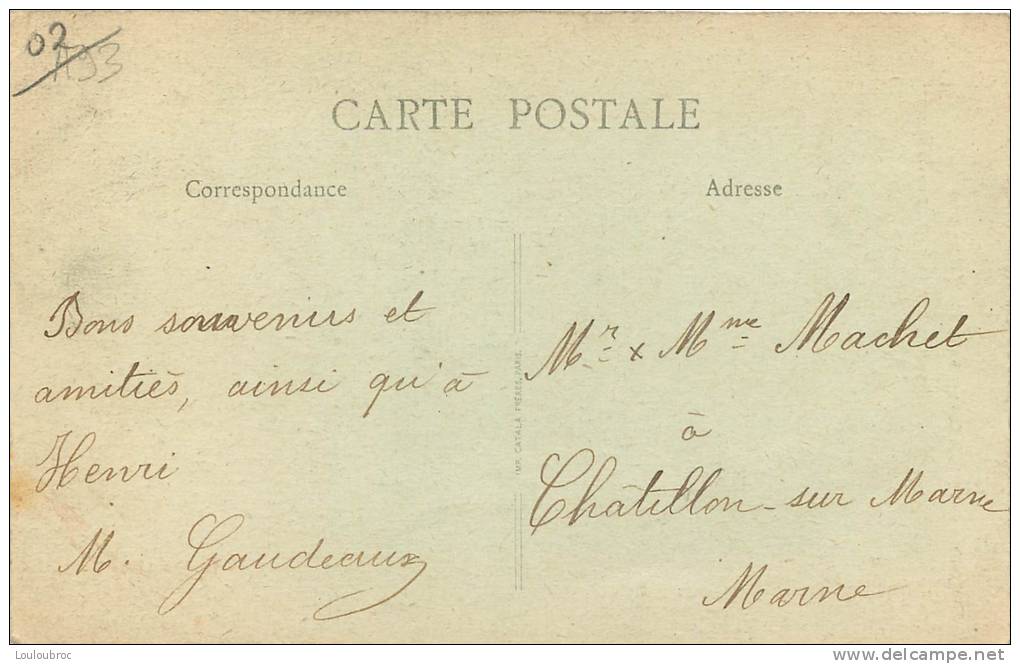 02
A93
CARTE POSTALE
Correspondance
Adresse
Bons souvenirs et
amitiés, ainsi qu'à
Henri
M. Gaudeaux
IMP. CATALA FRÈRES, PARIS.
Mr & Mme Machet
à
Châtillon-sur Marne
Marne
Louloubroc
www.delcampe.net